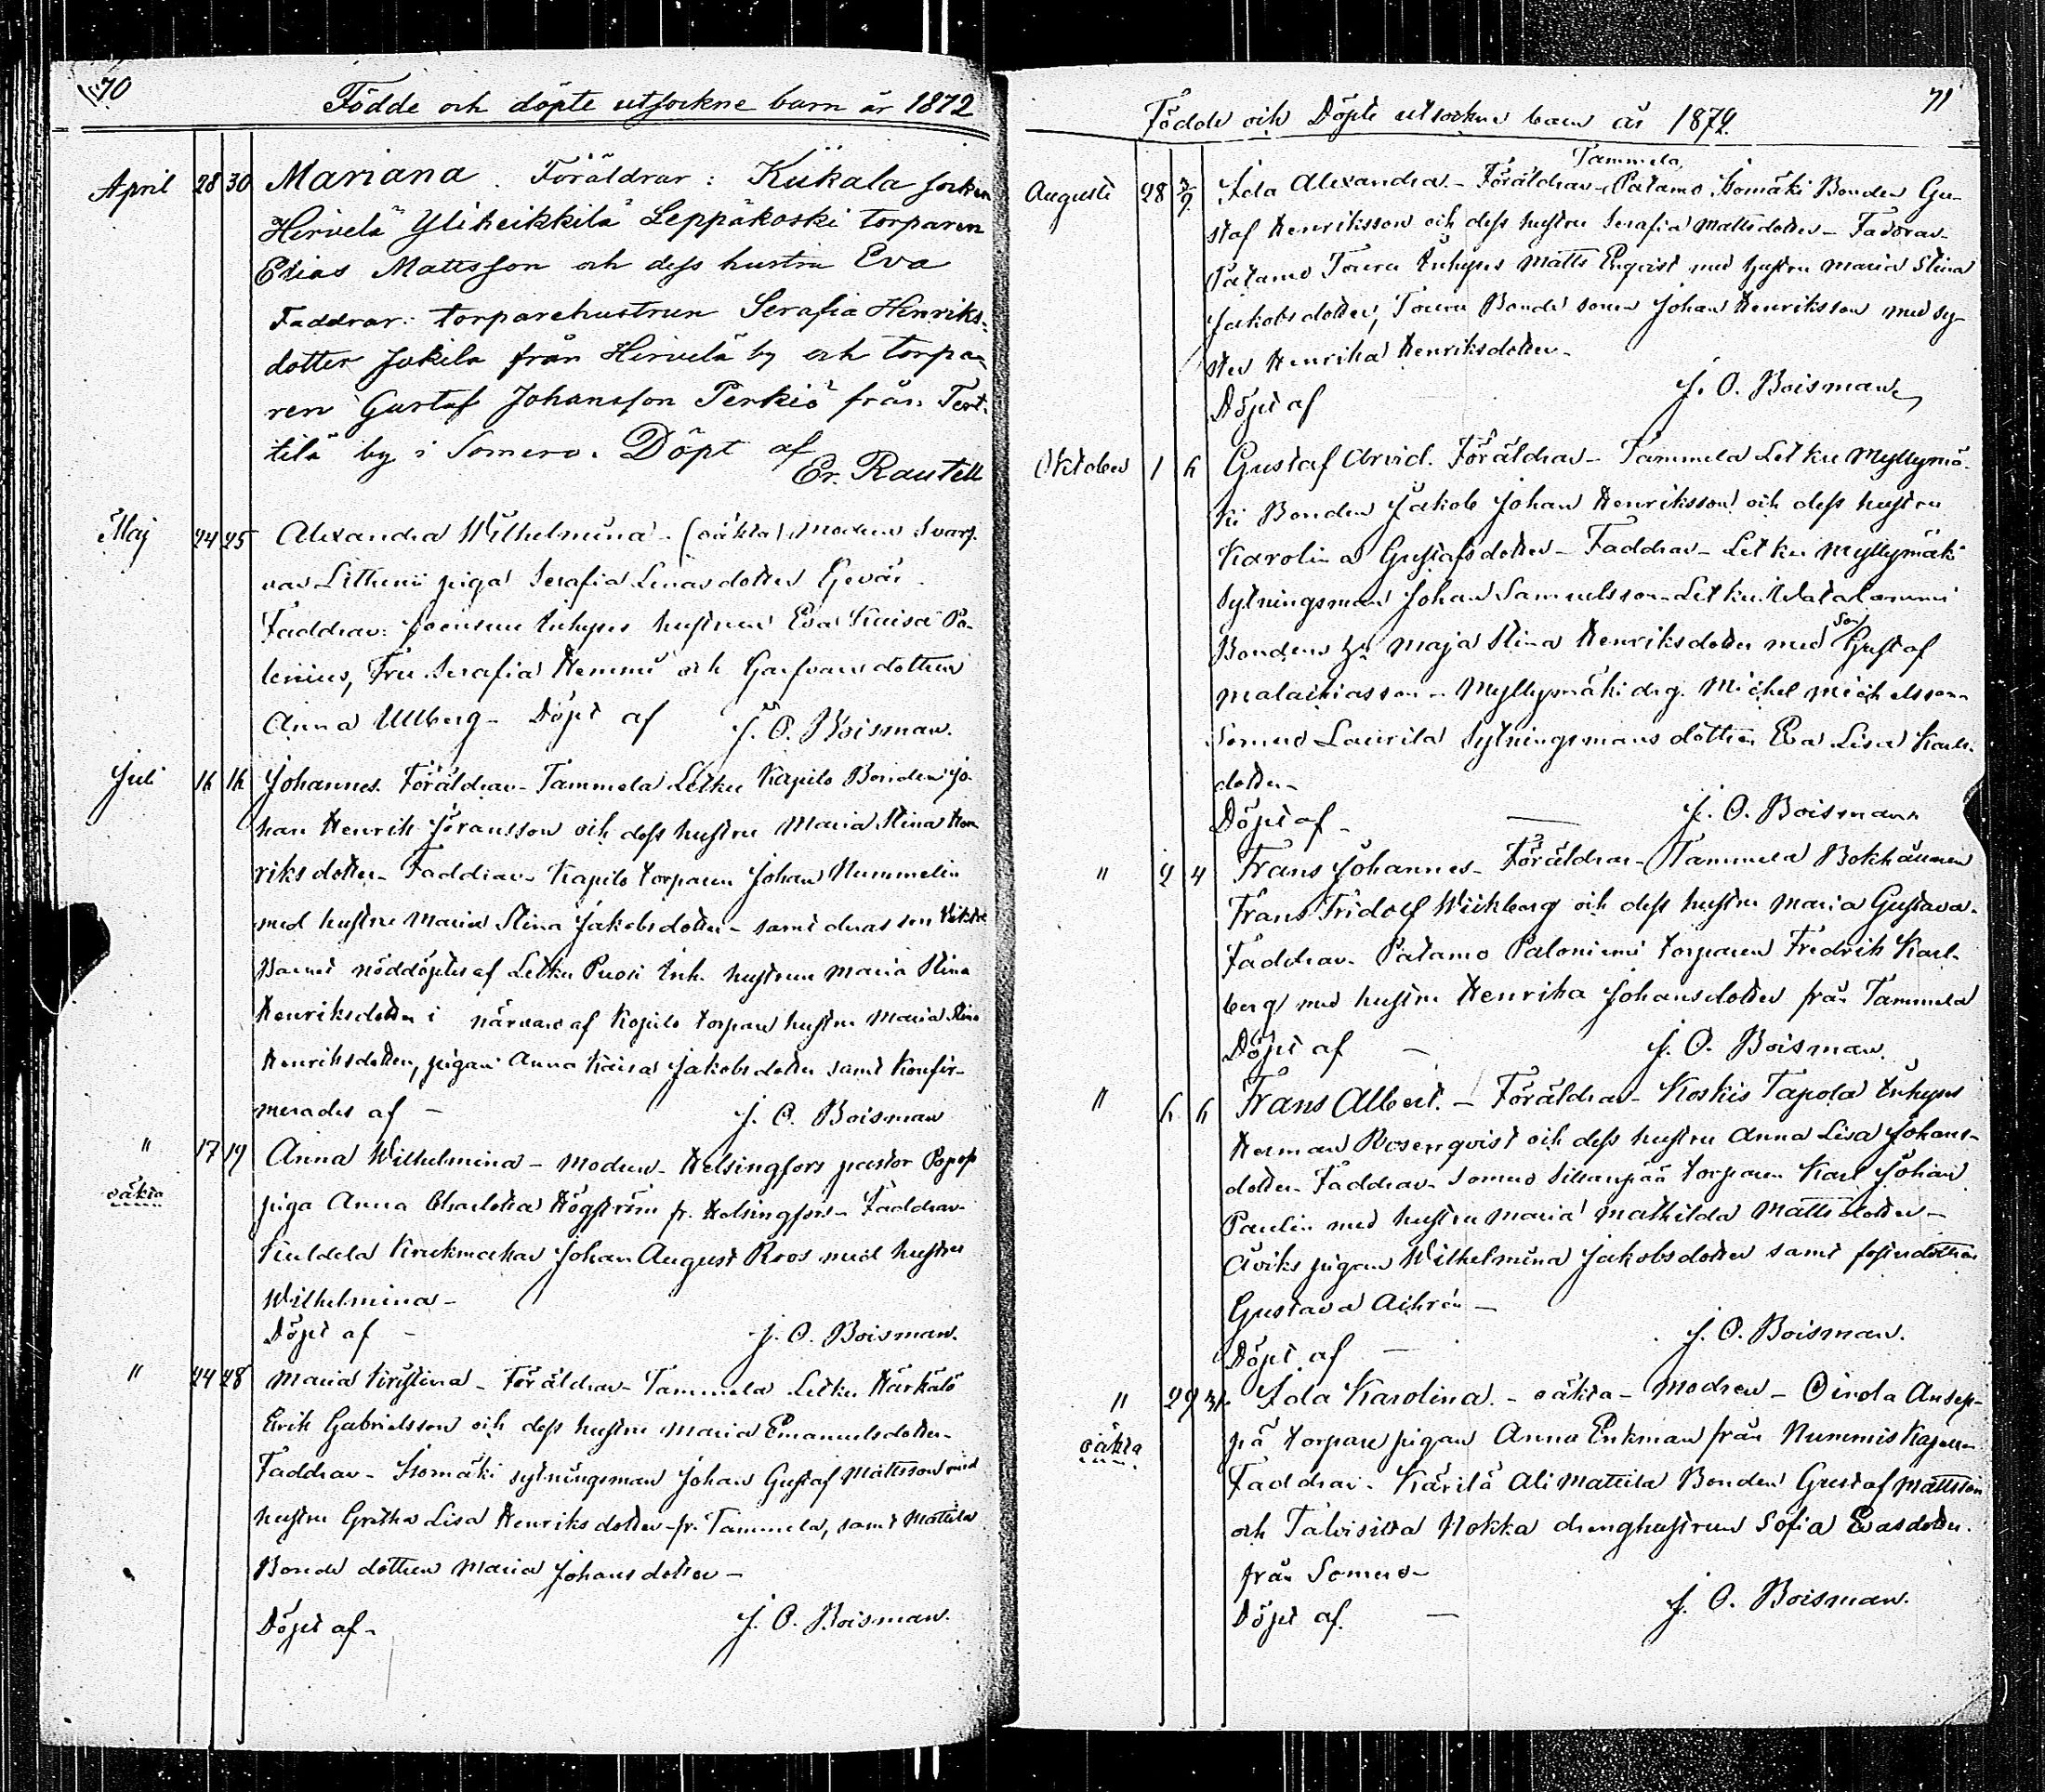 70
Födde och döpte utsockne barn år 1872
April 28 30 Mariana. Föräldrar: Kiikala socken
Hirvelä Yliheikkilä Leppäkoski torparen
Elias Mattsson och dess hustru Eva
Faddrar: torparehustrun Serafia Henriks-
dotter Jokila från Hirvelä by och torpa-
ren Gustaf Johansson Perkiö från Tert-
tilä by i Somero. Döpt af
Er. Rautell
Maj 24 25 Alexandra Wilhelmina - (oäkta) Modren Svarf-
var Lithenii piga Serafia Linasdotter
Faddrar: Joensuu Inhyses hustrun Eva Kaisa Po-
lenius, Fru Serafia Hemmi och Garfvare dottren
Anna Ullberg - Döpt af J. O. Boisman.
Juli 16 16 Johannes. Föräldrar - Tammela Letku Kapilo Bonden Jo-
han Henrik Göransson och dess hustru Maria Stina Hen-
riksdotter - Faddrar - Kapilo torparen Johan Nummelin
med hustru Maria Stina Jakobsdotter - samt deras son
Barnet nöddöptes af Letku Puosi Inh. hustrun Maria Stina
Henriksdotter i närvaro af Kapilo torpare hustru Maria Stina
Henriksdotter, pigan Anna Kaisa Jakobsdotter samt Konfir-
merades af - J. O. Boisman
" 17 19 Anna Wilhelmina - Modren - Helsingfors pastor
oäkta piga Anna Charlotta Högström fr. Helsingfors - Faddrar -
Kuldela Krukmakar Johan August Roos med hustru
Wilhelmina -
Döpt af - J. O. Boisman.
" 24 28 Maria Kristina - Föräldrar - Tammela Letku Härkälö
Erik Gabrielsson och dess hustru Maria Emanuelsdotter -
Faddrar - Isomäki sytningsman Johan Gustaf Mattsson med
hustru Gretha Lisa Henriksdotter fr. Tammela, samt Mattila
Bonde dottren Maria Johansdotter -
Döpt af - J. O. Boisman.
71
Födde och Döpte utsockne barn år 1872.
Tammela,
Augusti 28 3/9 Ida Alexandra - Föräldrar - Patamo Isomäki Bonden Gu-
staf Henriksson och dess hustru Serafia Mattsdotter - Faddrar -
Patamo Touru Inhyses Matts Enqvist med hustru Maria Stina
Jakobsdotter, Touru Bonde sonen Johan Henriksson med sy-
ster Henrika Henriksdotter -
J. O. Boisman
Döpt af
Oktober 1 6 Gustaf Arvid. Föräldrar - Tammela Letku Myllymä-
ki Bonden Jakob Johan Henriksson och dess hustru
Karolina Gustafsdotter - Faddrar - Letku Myllymäki
Sytningsman Johan Samuelsson - Letku
son
Bondens h. Maja Stina Henriksdotter med Gustaf
Malachiasson - Myllymäki drg. Michel Michelsson -
Somero Laurila Sytningsmans dottren Eva Lisa Karls-
dotter -
Döpt af - J. O. Boisman
" 2 4 Frans Johannes - Föräldrar - Tammela Bokhållaren
Frans Fridolf Wichberg och dess hustru Maria Gustava.
Faddrar - Patamo Paloniemi torparen Fredrik Karl-
berg med hustru Henrika Johansdotter från Tammela
Döpt af - J. O. Boisman.
" 6 6 Frans Albert. - Föräldrar - Koskis Tapola Inhyses
Herman Rosenqvist och dess hustru Anna Lisa Johans-
dotter - Faddrar - Somero Sillanpää torparen Karl Johan
Paulin med hustru Maria Mathilda Mattsdotter -
Åviks pigan Wilhelmina Jakobsdotter samt fosterdottren
Gustava
J. O. Boisman.
Döpt af -
" 29 31 Ida Karolina. - oäkta - Modren - Oinola Ansep-
oäkta på torpare pigan Anna Enkman från Nummis Kapell
Faddrar - Kärilä Ali Mattila Bonden Gustaf Mattsson
och Talvisilta Nokka drenghustrun Sofia Evasdotter.
från Somero -
Döpt af. - J. O. Boisman.